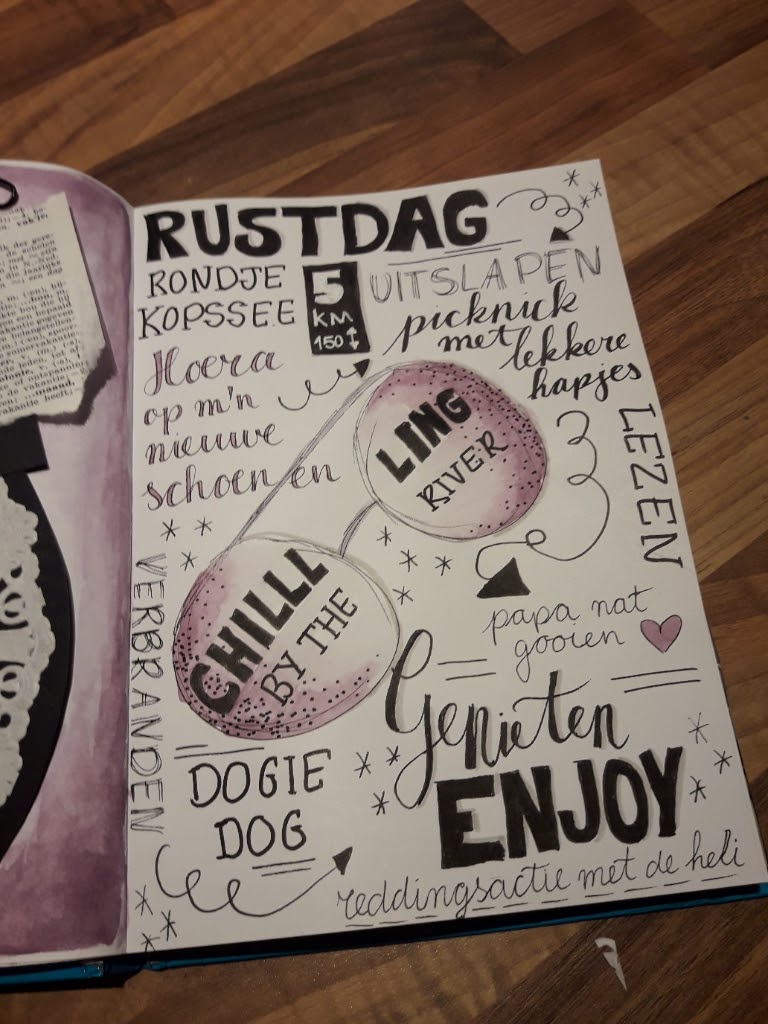 RUSTDAG
RONDJE
KOPSSEE
5
KM
150
UITSLAPEN
picknick
met lekkere
hapjes
Hoera
op m'n
nieuwe
schoenen
LING
RIVER
CHILLL
BY THE
LEZEN
VERBRANDEN
papa nat
gooien
Genieten
ENJOY
DOGIE
DOG
reddingsactie met de heli